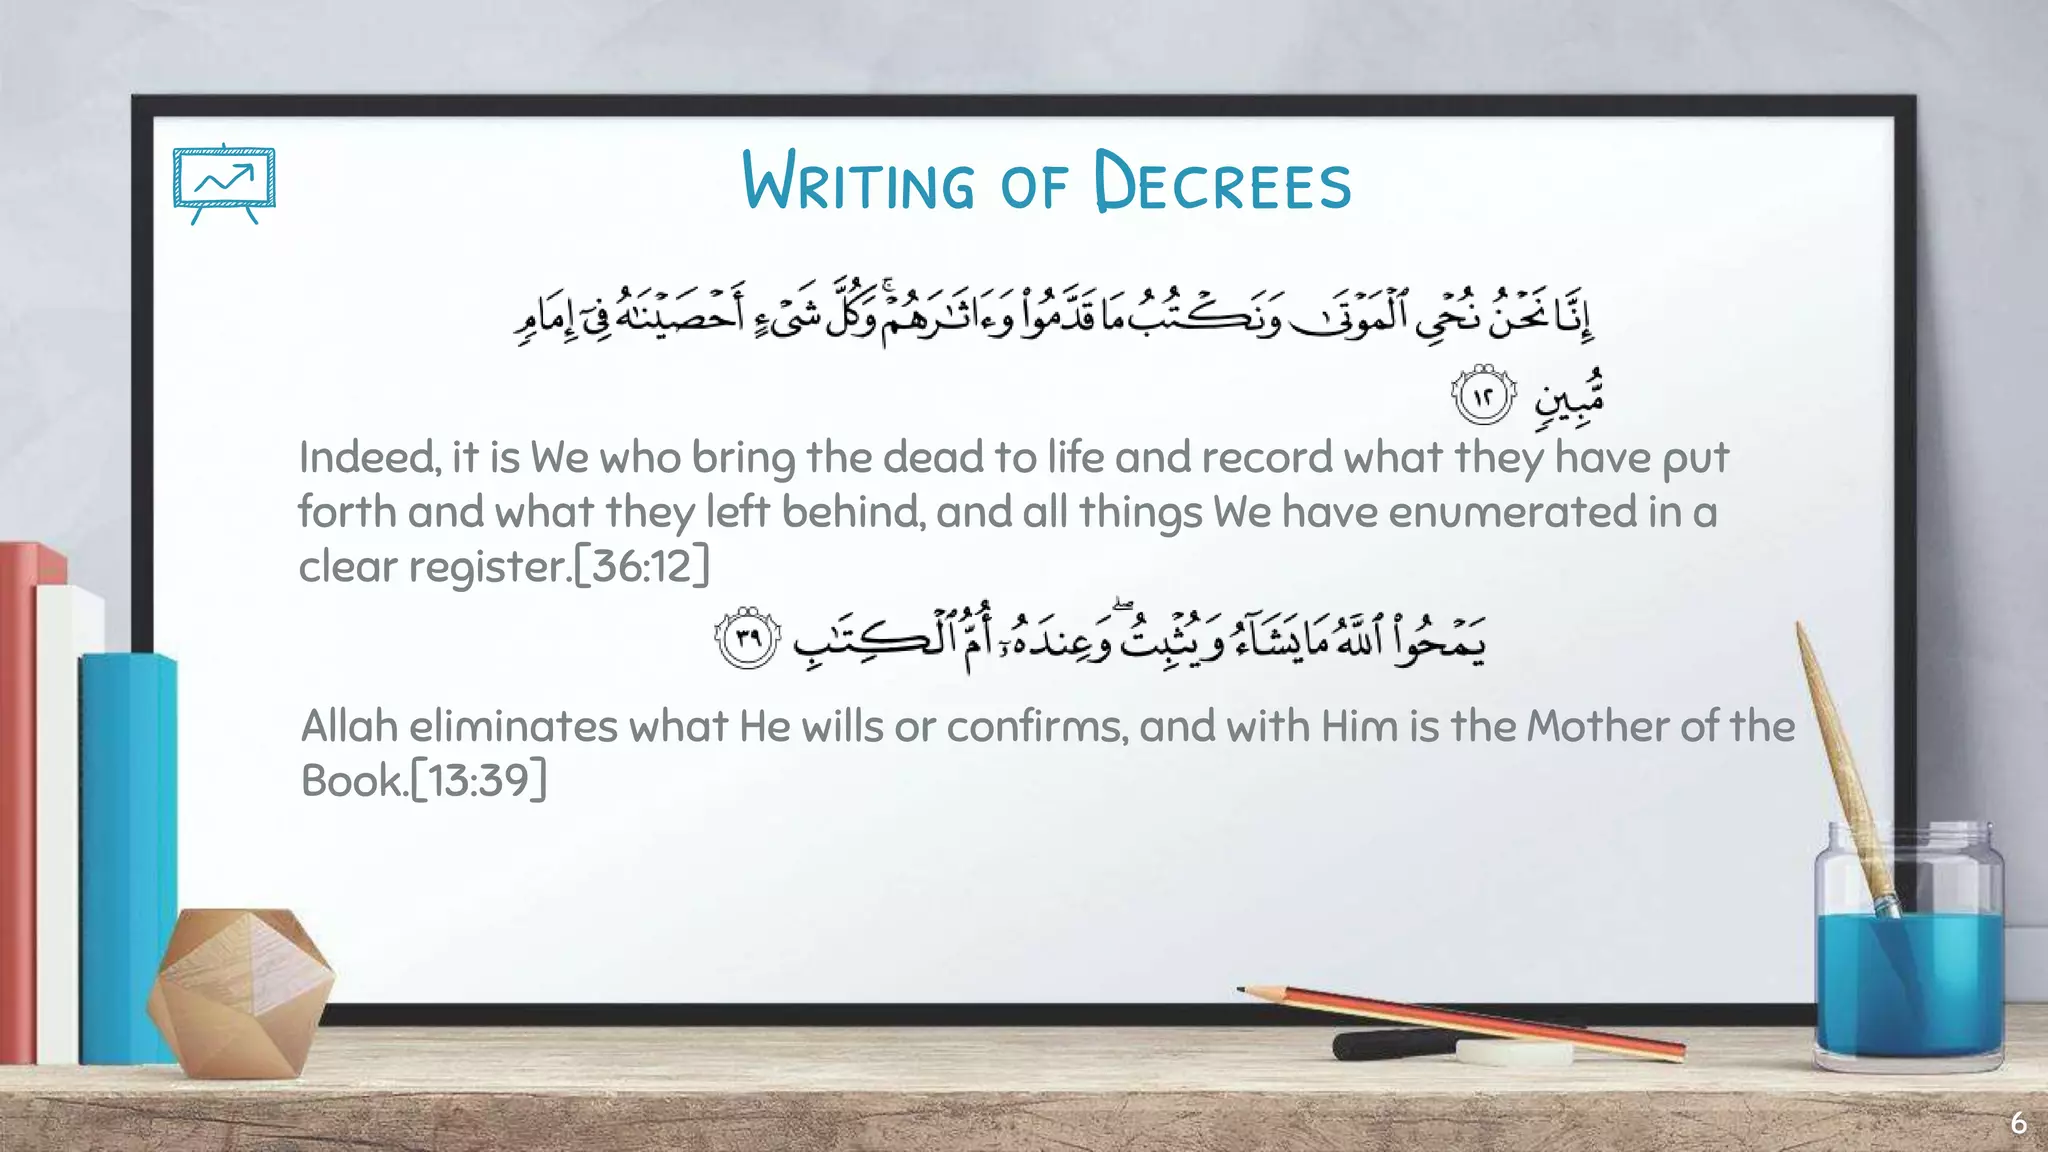 WRITING OF DECREES
إِنَّا نَحْنُ نُحْىِ ٱلْمَوْتَىٰ وَنَكْتُبُ مَا قَدَّمُوا۟ وَءَاثَـٰرَهُمْ ۚ وَكُلَّ شَىْءٍ أَحْصَيْنَـٰهُ فِىٓ إِمَامٍ
مُّبِينٍ ١٢
Indeed, it is We who bring the dead to life and record what they have put
forth and what they left behind, and all things We have enumerated in a
clear register.[36:12]
يَمْحُوا۟ ٱللَّهُ مَا يَشَآءُ وَيُثْبِتُ ۖ وَعِندَهُۥٓ أُمُّ ٱلْكِتَـٰبِ ٣٩
Allah eliminates what He wills or confirms, and with Him is the Mother of the
Book.[13:39]
6